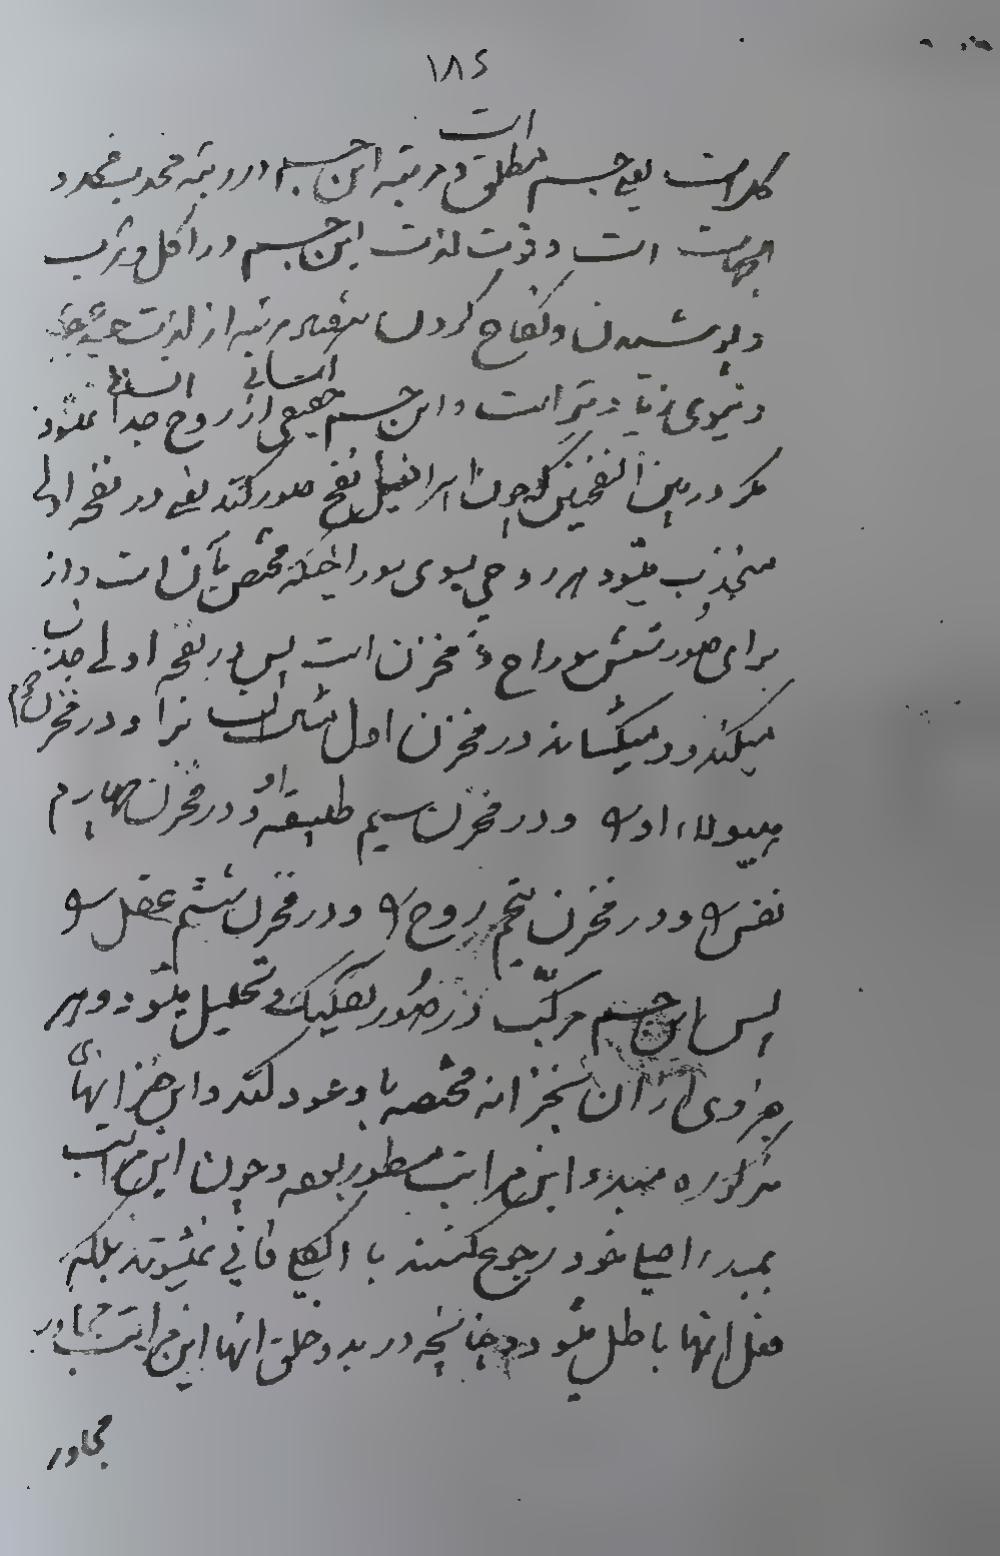 ۱۸۶
است
کل است یعنی جسم مطلق و مرتبه این جسم در رتبه محدب محدد
جهات است و قوت لذت این جسم در اکل و شرب
و پوشیدن و نکاح کردن مرتبه از لذت
انسانی
دنیوی زیادتر است و این جسم حقیقی از روح جدا نمیشود
مگر در بین النفختین که چون اسرافیل نفخ صور کند یعنی در نفخه اولی
منجذب میشود هر روحی بسوی سوراخیکه مختص بآن است و از
برای صور شش سوراخ و مخزن است پس در نفخه اولی جذب
میکند و میکشاند در مخزن اول مثال را و در مخزن دوم
هیولاء او و در مخزن سیم طبیعه او و در مخزن چهارم
نفس و در مخزن پنجم روح و در مخزن ششم عقل
پس این جسم مرکب در صور تفکیک و تحلیل میشود و هر
جزوی از آن بخزانه مختصه باو عود کند و این خزانهای
مذکوره مبدء این مراتب مسطور بوده و چون این مراتب
بمبدء اصلی خود رجوع کنند با الکلی فانی نمیشوند بلکه
فعل انها باطل میشود و چنانچه در بدو خلق انها این مراتب
مجاور